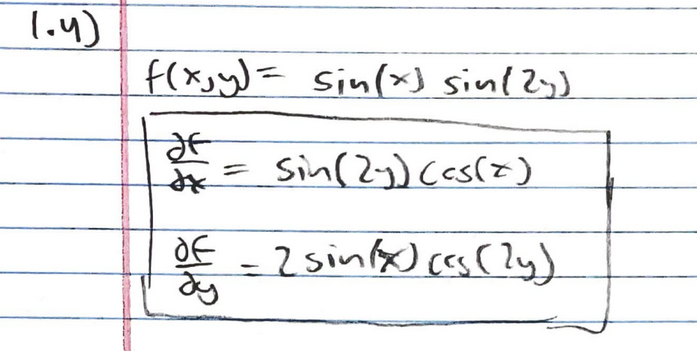 1.4)
f(x,y) = sin(x) sin(2y)
∂f/∂x = sin(2y) cos(x)
∂f/∂y = 2 sin(x) cos(2y)